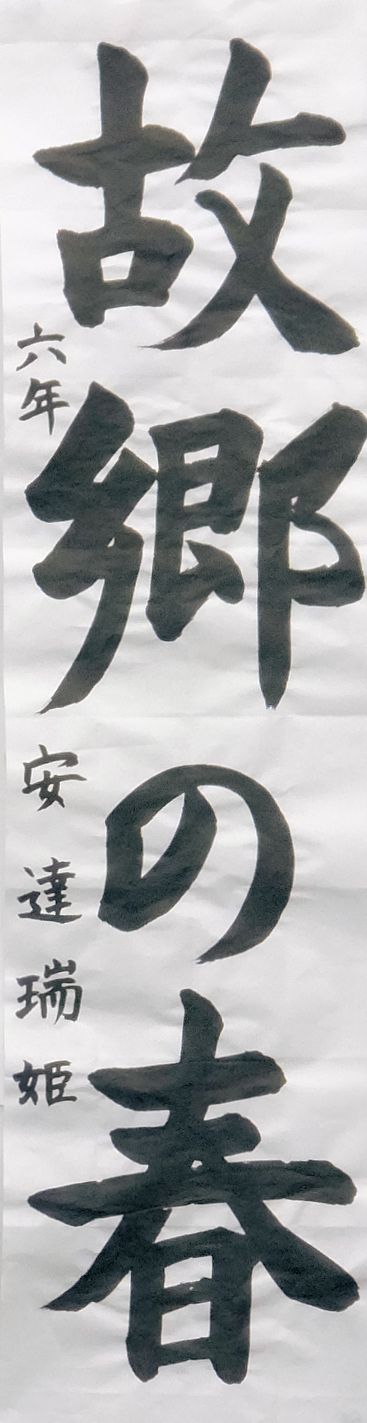 故郷の春
六年 安達瑞姫